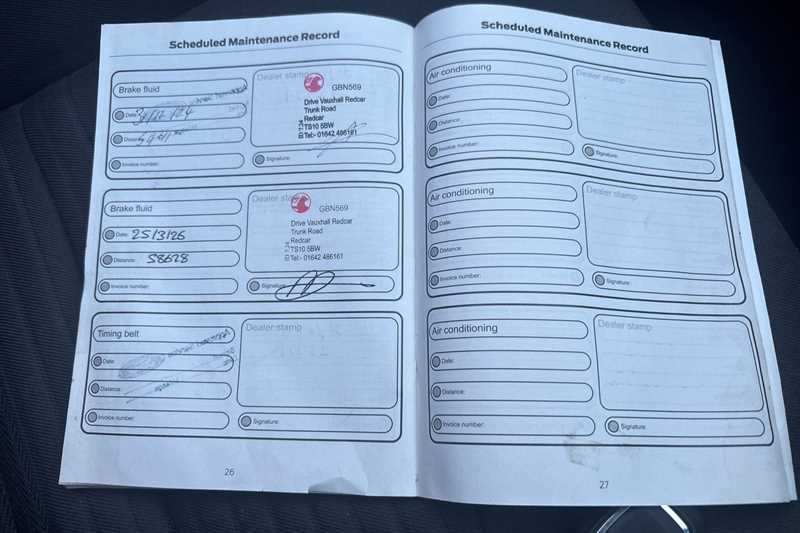 Scheduled Maintenance Record
Brake fluid
Date:
Distance:
Invoice number:
Dealer stamp
GBN569
Drive Vauxhall Redcar
Trunk Road
Redcar
TS10 5BW
Tel:- 01642 486161
Signature:
Brake fluid
Date: 25/3/26
Distance: 58628
Invoice number:
Dealer stamp
GBN569
Drive Vauxhall Redcar
Trunk Road
Redcar
TS10 5BW
Tel:- 01642 486161
Signature:
Timing belt
Date:
Distance:
Invoice number:
Dealer stamp
Signature:
26
Scheduled Maintenance Record
Air conditioning
Date:
Distance:
Invoice number:
Dealer stamp
Signature:
Air conditioning
Date:
Distance:
Invoice number:
Dealer stamp
Signature:
Air conditioning
Date:
Distance:
Invoice number:
Dealer stamp
Signature:
27